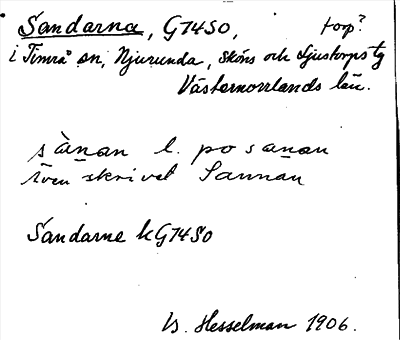 Sandarna, G74S0, torp?
i Timrå sn, Njurunda, Sköns och Ljustorps tg
Västernorrlands län.
sànan l. po sanan
även skrivet Sannan
Sandarne k G74S0
B. Hesselman 1906.